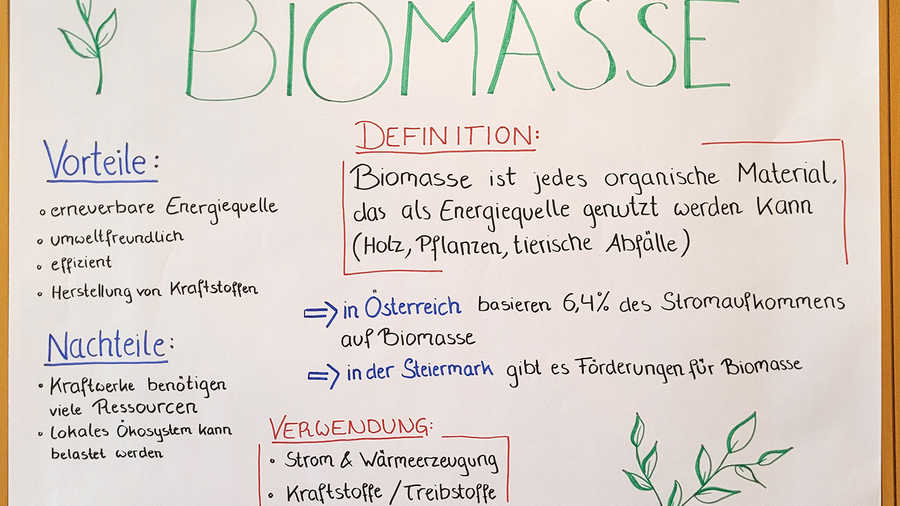 BIOMASSE
Vorteile:
• erneuerbare Energiequelle
• umweltfreundlich
• effizient
• Herstellung von Kraftstoffen
Nachteile:
• Kraftwerke benötigen
viele Ressourcen
• lokales Ökosystem kann
belastet werden
DEFINITION:
Biomasse ist jedes organische Material,
das als Energiequelle genutzt werden kann
(Holz, Pflanzen, tierische Abfälle)
⇒ in Österreich basieren 6,4% des Stromaufkommens
auf Biomasse
⇒ in der Steiermark gibt es Förderungen für Biomasse
VERWENDUNG:
• Strom & Wärmeerzeugung
• Kraftstoffe / Treibstoffe